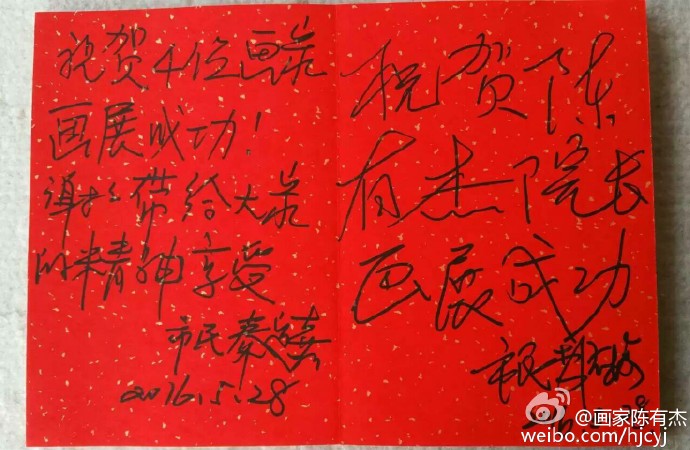 祝贺4位画家
画展成功!
谢谢带给大家
的精神享受
市民秦
2016.5.28
祝贺陈
有杰院长
画展成功
市民
@画家陈有杰
weibo.com/hjcyj